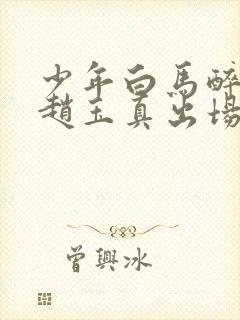 少年白馬醉
趙玉真出場
曾興冰